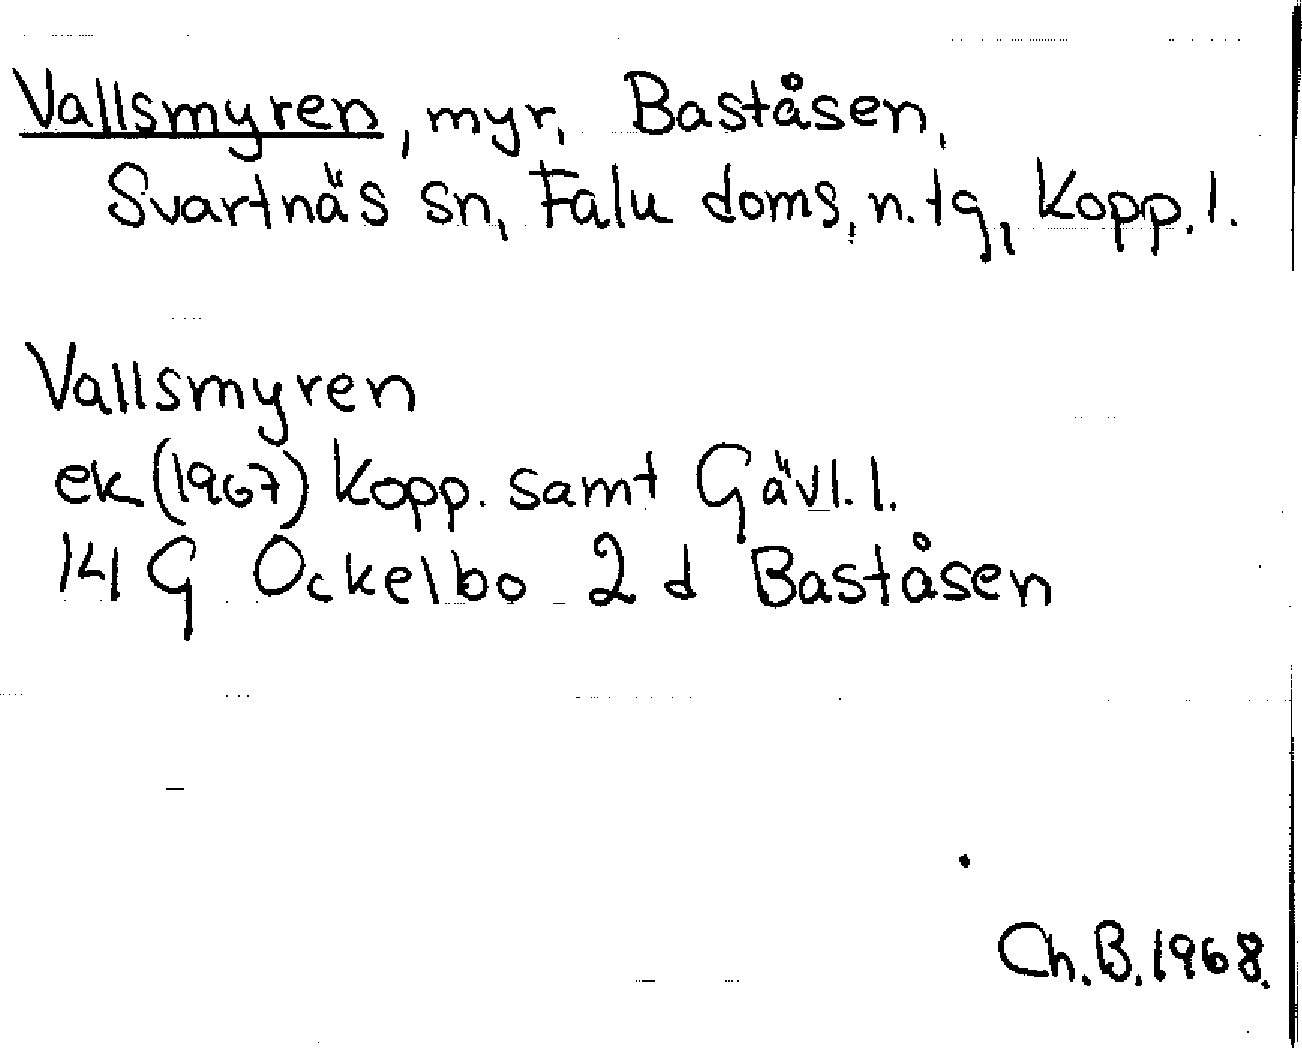 Vallsmyren, myr, Baståsen,
Svartnäs sn, Falu doms, n. tg, Kopp. l.
Vallsmyren
ek (1967) Kopp. samt Gävl. l.
14 G Ockelbo 2 d Baståsen
Ch. B. 1968.